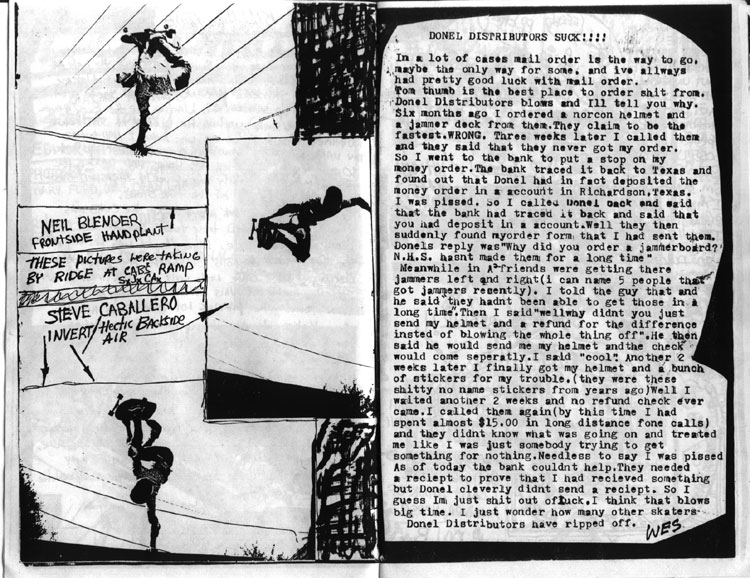 NEIL BLENDER
FRONTSIDE HANDPLANT
THESE PICTURES WERE TAKING
BY RIDGE AT CAB'S RAMP
STEVE CABALLERO
INVERT/Hectic BACKSIDE
AIR
DONEL DISTRIBUTORS SUCK!!!!
In a lot of cases mail order is the way to go,
maybe the only way for some, and ive allways
had pretty good luck with mail order.
Tom thumb is the best place to order shit from.
Donel Distributors blows and Ill tell you why.
Six months ago I ordered a norcon helmet and
a jammer deck from them.They claim to be the
fastest.WRONG. Three weeks later I called them
and they said that they never got my order.
So I went to the bank to put a stop on my
money order.The bank traced it back to Texas and
found out that Donel had in fact deposited the
money order in a account in Richardson,Texas.
I was pissed. So I called Donel back and said
that the bank had traced it back and said that
you had deposit in a account.Well they then
suddenly found myorder form that I had sent them.
Donels reply was"Why did you order a jammerboard?
N.H.S. hasnt made them for a long time"
Meanwhile in A friends were getting there
jammers left and right(i can name 5 people that
got jammers recently). I told the guy that and
he said"they hadnt been able to get those in a
long time".Then I said"wellwhy didnt you just
send my helmet and a refund for the difference
insted of blowing the whole thing off".He then
said he would send me my helmet andthe check
would come seperatly.I said "cool". Another 2
weeks later I finally got my helmet and a bunch
of stickers for my trouble.(they were these
shitty no name stickers from years ago)Well I
waited another 2 weeks and no refund check ever
came.I called them again(by this time I had
spent almost $15.00 in long distance fone calls)
and they didnt know what was going on and treated
me like I was just somebody trying to get
something for nothing.Needless to say I was pissed
As of today the bank couldnt help.They needed
a reciept to prove that I had recieved something
but Donel cleverly didnt send a reciept. So I
guess Im just shit out ofluck.I think that blows
big time. I just wonder how many other skaters
Donel Distributors have ripped off.
WES